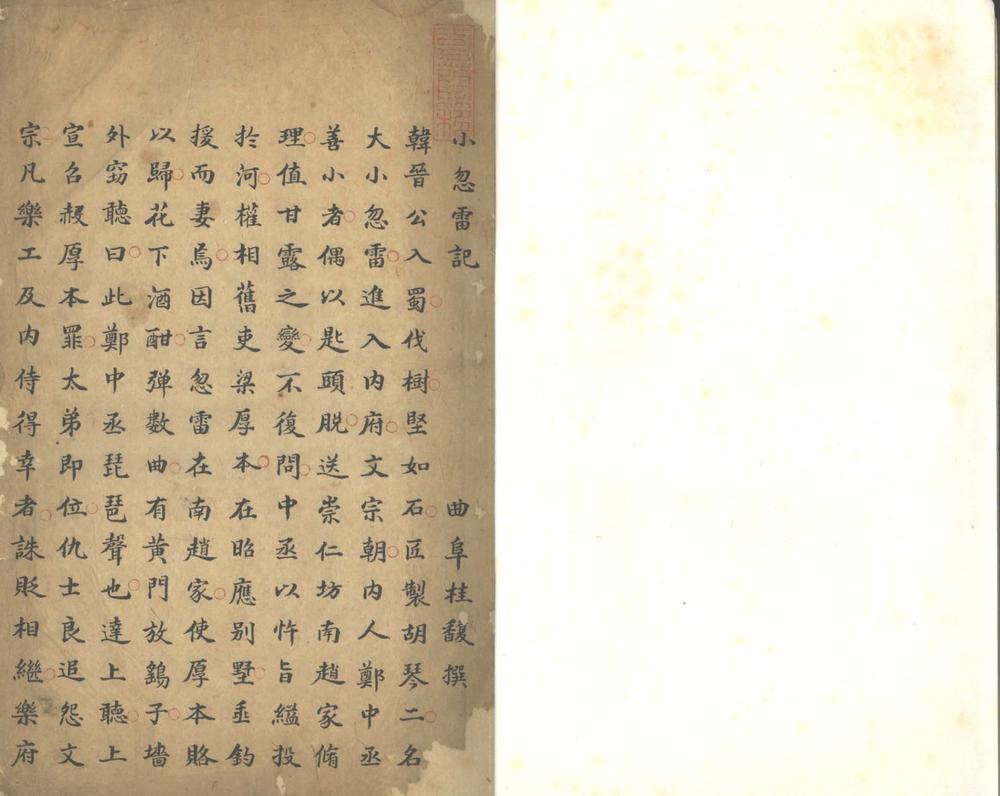 小忽雷記 曲阜桂馥撰
韓晉公入蜀伐樹堅如石匠製胡琴二名
大小忽雷進入内府文宗朝内人鄭中丞
善小者偶以匙頭脱送崇仁坊南趙家脩
理值甘露之變不復問中丞以忤旨縊投
於河權相舊吏梁厚本在昭應别墅垂釣
援而妻焉因言忽雷在南趙家使厚本賂
以歸花下酒酣弹數曲有黄門放鷂子墻
外竊聽曰此鄭中丞琵琶聲也達上聽上
宣召赦厚本罪太弟即位仇士良追怨文
宗凡樂工及内侍得幸者誅貶相繼樂府